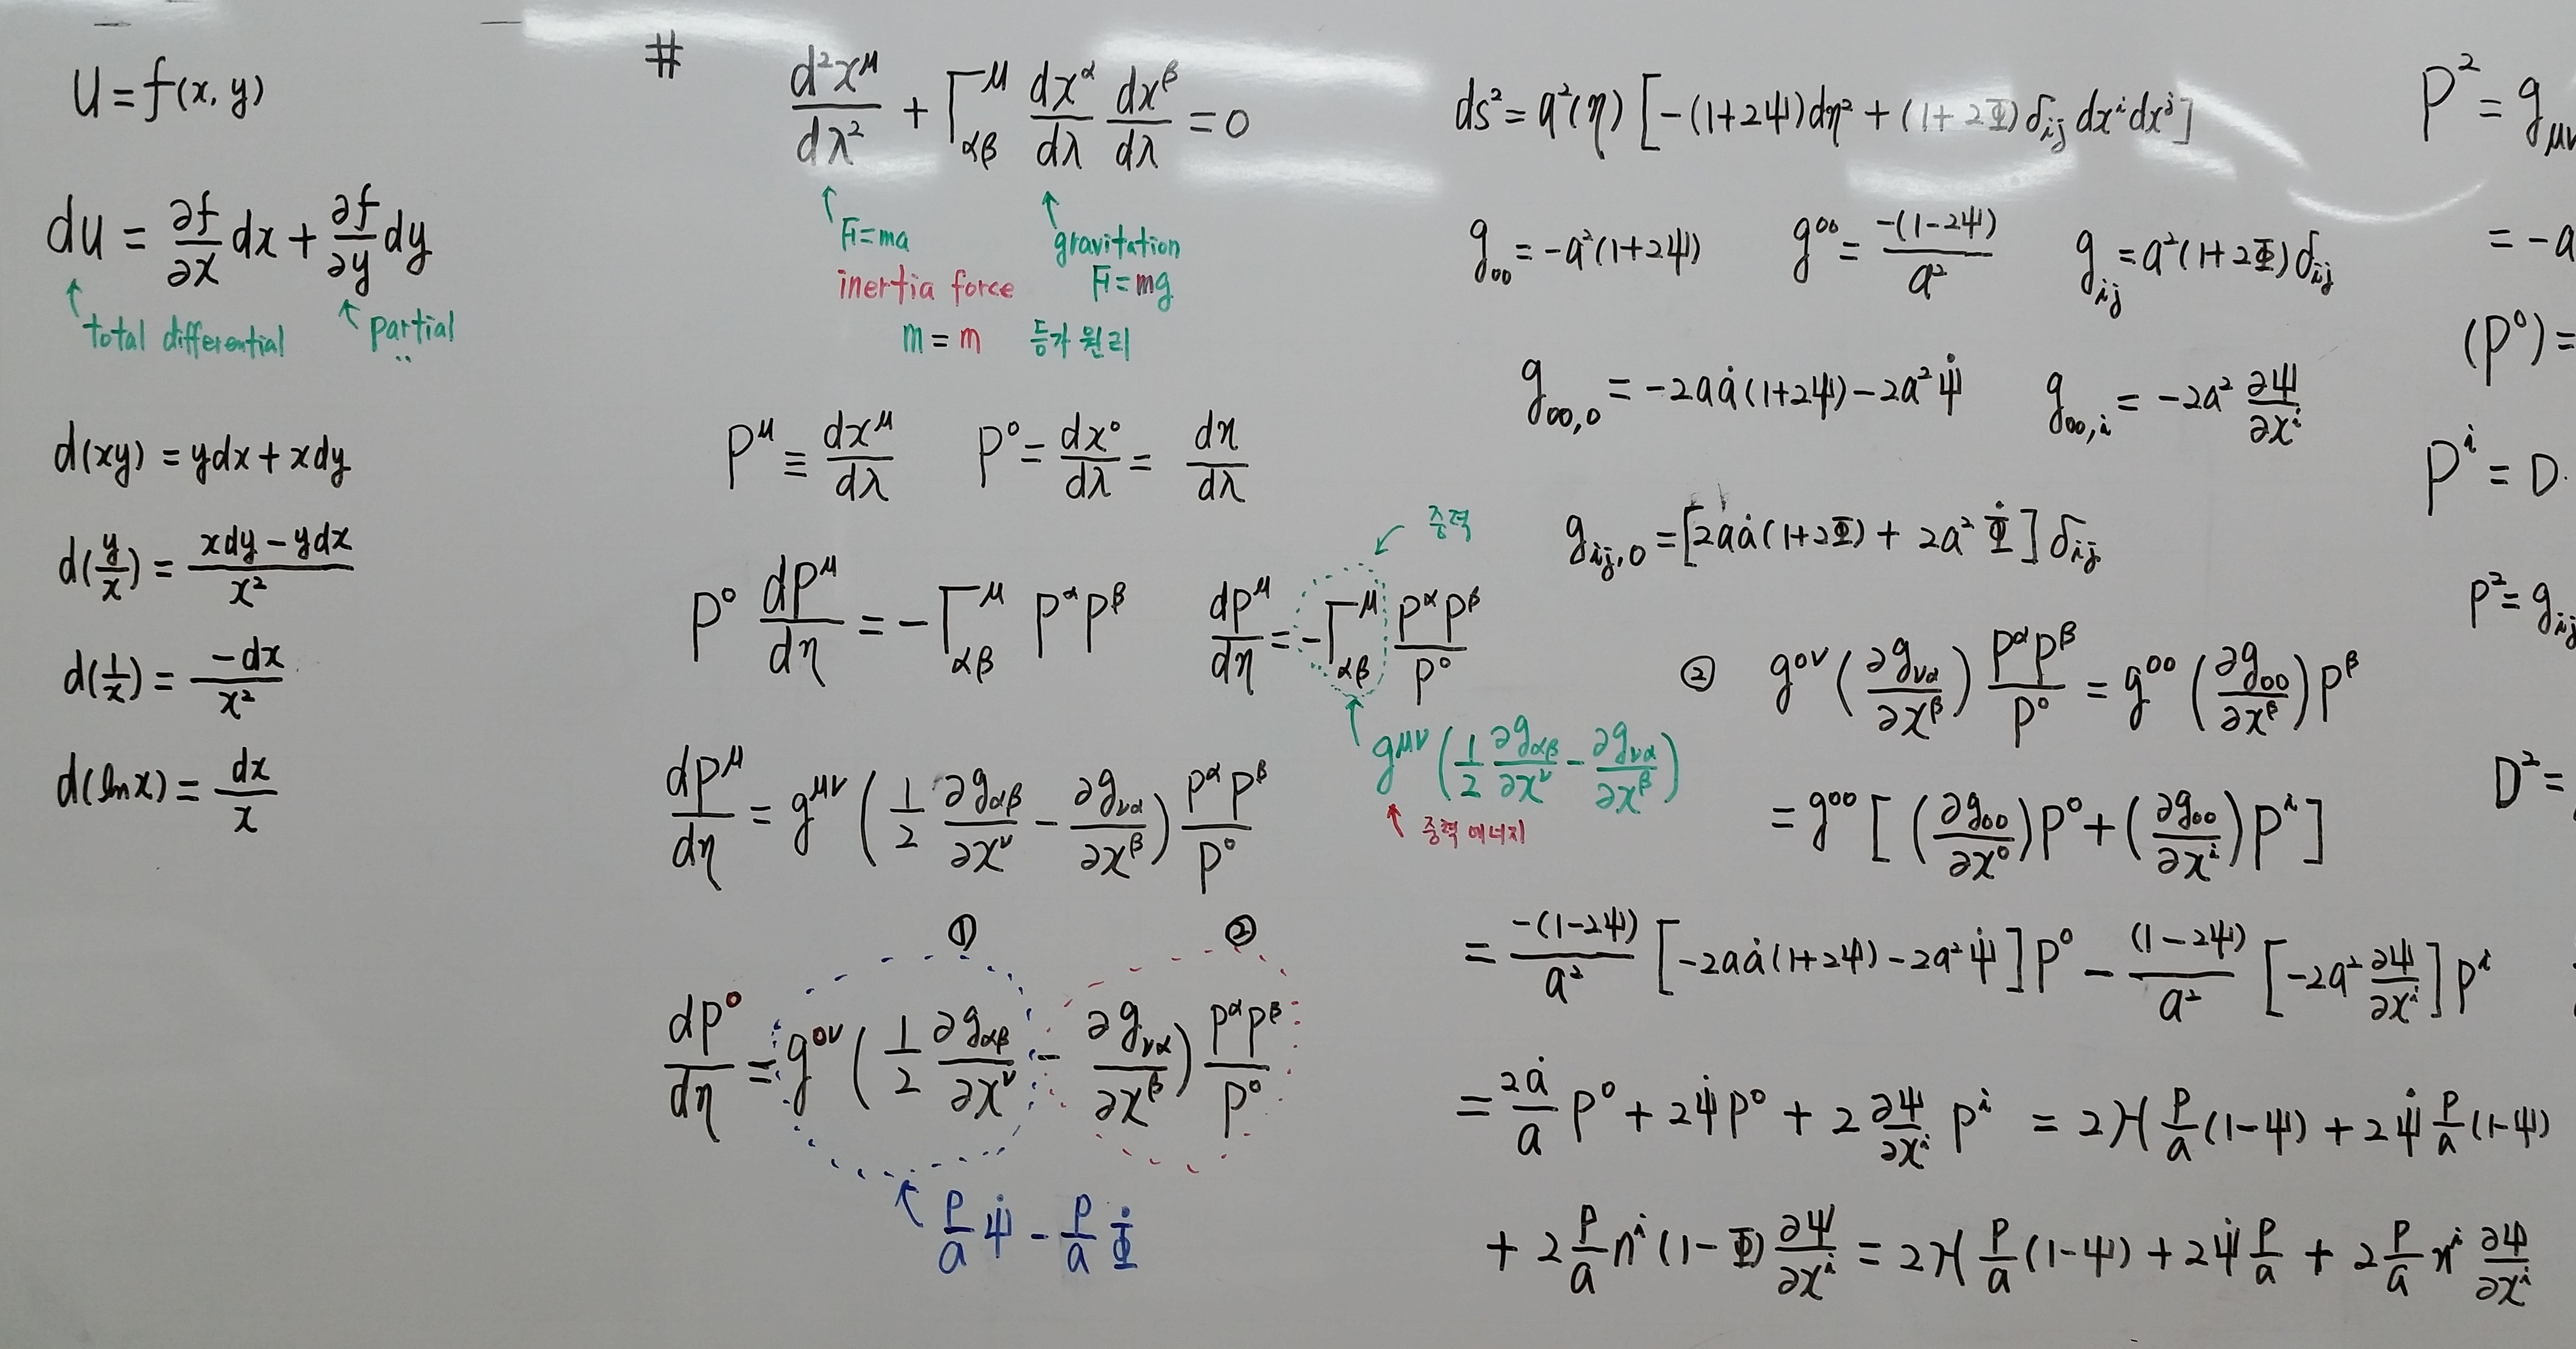 U = f(x, y)
du = ∂f/∂x dx + ∂f/∂y dy
↑ total differential ↑ partial
d(xy) = ydx + xdy
d(y/x) = (xdy - ydx)/x²
d(1/x) = -dx/x²
d(ln x) = dx/x
# d²x^μ/dλ² + Γ^μ_αβ dx^α/dλ dx^β/dλ = 0
↑ F=ma ↑ gravitation
inertia force F=mg
m = m 등가 원리
P^μ ≡ dx^μ/dλ P⁰ = dx⁰/dλ = dη/dλ
P⁰ dP^μ/dη = -Γ^μ_αβ P^α P^β dP^μ/dη = -Γ^μ_αβ P^α P^β/P⁰
중력
g^μν (1/2 ∂g_αβ/∂x^ν - ∂g_να/∂x^β)
↑ 중력 에너지
dP^μ/dη = g^μν (1/2 ∂g_αβ/∂x^ν - ∂g_να/∂x^β) P^α P^β/P⁰
① ②
dP⁰/dη = g^0ν (1/2 ∂g_αβ/∂x^ν - ∂g_να/∂x^β) P^α P^β/P⁰
↑ P/a ψ̇ - P/a Φ̇
ds² = a²(η) [-(1+2ψ)dη² + (1+2Φ)δ_ij dx^i dx^j]
g_00 = -a²(1+2ψ) g^00 = -(1-2ψ)/a² g_ij = a²(1+2Φ)δ_ij
g_00,0 = -2aȧ(1+2ψ) - 2a²ψ̇ g_00,i = -2a² ∂ψ/∂x^i
g_ij,0 = [2aȧ(1+2Φ) + 2a²Φ̇] δ_ij
② g^0ν (∂g_να/∂x^β) P^α P^β/P⁰ = g^00 (∂g_00/∂x^β) P^β
= g^00 [(∂g_00/∂x⁰)P⁰ + (∂g_00/∂x^i)P^i]
= -(1-2ψ)/a² [-2aȧ(1+2ψ) - 2a²ψ̇] P⁰ - (1-2ψ)/a² [-2a² ∂ψ/∂x^i] P^i
= 2ȧ/a P⁰ + 2ψ̇P⁰ + 2 ∂ψ/∂x^i P^i = 2H P/a (1-ψ) + 2ψ̇ P/a (1-ψ)
+ 2 P/a n^i (1-Φ) ∂ψ/∂x^i = 2H P/a (1-ψ) + 2ψ̇ P/a + 2 P/a n^i ∂ψ/∂x^i
P² = g_μν
= -a
(P⁰) =
P^i = D
P² = g_ij
D² =